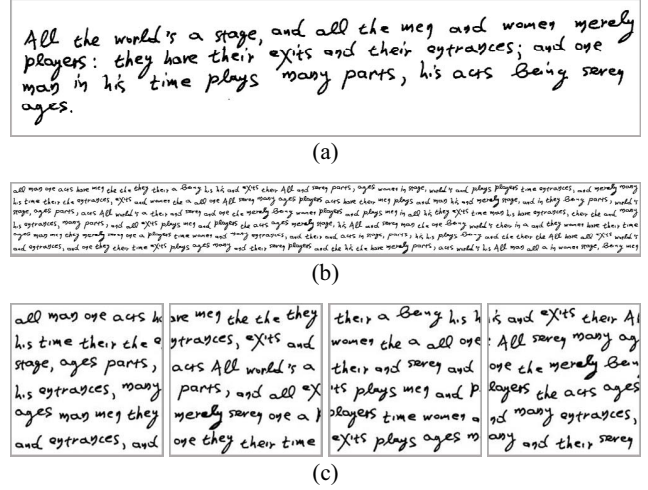 All the world's a stage, and all the men and women merely
players: they have their exits and their entrances; and one
man in his time plays many parts, his acts Being seven
ages.
(a)
all man one acts have men the the they their a Being his his and exits their All and seven parts, ages women in stage, world's and plays players time entrances, and merely many
his time their the entrances, exits and women the a all one All seven many ages players acts have their men plays and man his and merely stage, and in they Being parts, world's
stage, ages parts, acts All world's a their and seven and one the merely Being women players and plays men in all his they exits time man his entrances, their the and many
his entrances, many parts, and all exits plays men and players the acts ages merely stage, his All and man the one Being world's their in a and they women have their time
ages man men they merely seven one a players time women and many entrances, and their acts in stage, parts, his his plays Being and the their the All have all exits world's
and entrances, and one they their time exits plays ages many and their seven players and the his the have merely parts, acts world's his All man all a in women stage, Being men
(b)
all man one acts h
his time their the e
stage, ages parts,
his entrances, many
ages man men they
and entrances, and
ave men the the they
ntrances, exits and
acts All world's a
parts, and all ex
merely seven one a p
one they their time
their a Being his h
women the a all one
their and seven and
its plays men and p
players time women a
exits plays ages m
is and exits their Al
All seven many ag
one the merely Bein
layers the acts ages
nd many entrances,
any and their seven
(c)